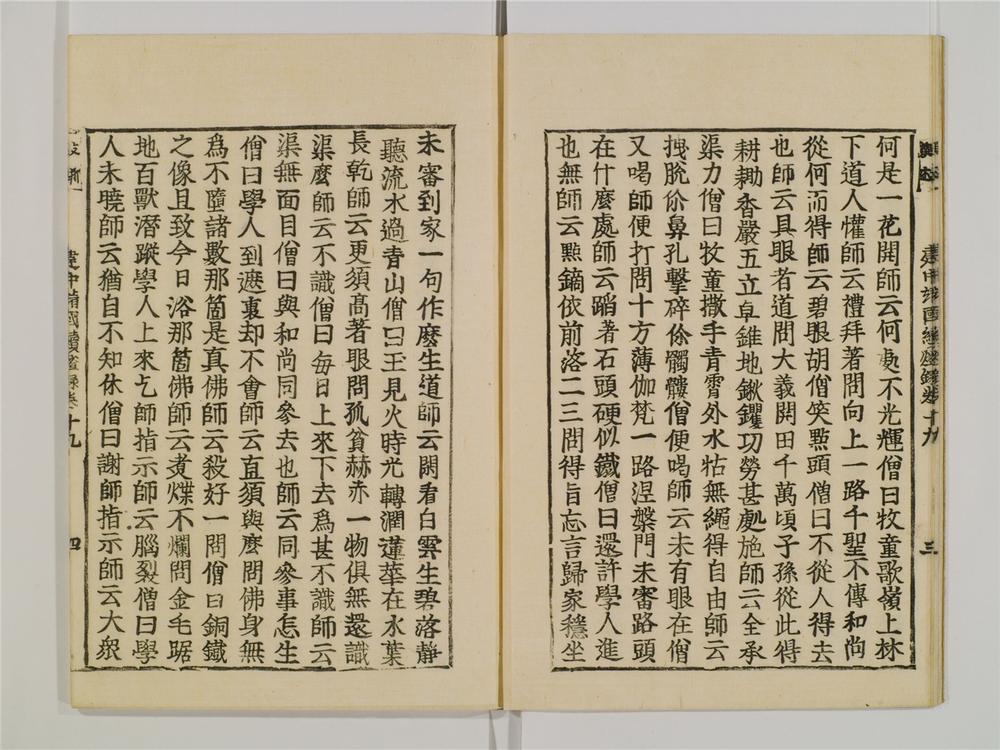 何是一花開師云何處不光輝僧曰牧童歌嶺上林
下道人懽師云禮拜著問向上一路千聖不傳和尚
從何而得師云碧眼胡僧笑點頭僧曰不從人得去
也師云具眼者道問大義開田千萬頃子孫從此得
耕耡香嚴五立卓錐地鍬钁功勞甚處施師云全承
渠力僧曰牧童撒手青霄外水牯無繩得自由師云
拽脫你鼻孔擊碎你髑髏僧便喝師云未有眼在僧
又喝師便打問十方薄伽梵一路涅槃門未審路頭
在什麼處師云蹈著石頭硬似鐵僧曰還許學人進
也無師云點鏑依前落二三問得旨忘言歸家穩坐
三
未審到家一句作麼生道師云閑看白雲生碧落靜
聽流水過青山僧曰王見火時光轉潤蓮華在水葉
長乾師云更須高著眼問孤貧赫赤一物俱無還識
渠麼師云不識僧曰每日上來下去爲甚不識師云
渠無面目僧曰與和尚同參去也師云同參事怎生
僧曰學人到遮裏却不會師云直須與麼問佛身無
爲不隨諸數那箇是真佛師云殺好一問僧曰銅鐵
之像且致今日浴那箇佛師云煑煠不爛問金毛踞
地百獸潛蹤學人上來乞師指示師云腦裂僧曰學
人未曉師云猶自不知休僧曰謝師指示師云大衆
建中靖國續燈錄卷十九
四